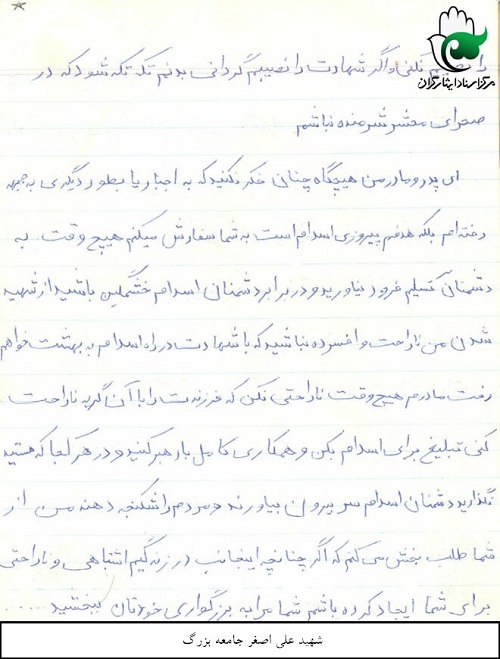 مرکز اسناد ایثارگران
را نصیبم نکنی و اگر شهادت را نصیبم گردانی بدنم تکه تکه شود که در
صحرای محشر شرمنده نباشم
ای پدر و مادر من هیچگاه چنان فکر نکنید که به اجبار یا بطور دیگری به جبهه
رفته‌ام بلکه هدفم پیروزی اسلام است به شما سفارش میکنم هیچ وقت به
دشمنان تسلیم فرود نیاورید و در برابر دشمنان اسلام خشمگین باشید از شهید
شدن من ناراحت و افسرده نباشید که با شهادت در راه اسلام به بهشت خواهم
رفت مادرم هیچ وقت ناراحتی نکن که فرزندت را با آن گریه ناراحت
کنی تبلیغ برای اسلام بکن و همکاری کامل با رهبر کنید و در هر کجا که هستید
نگذارید دشمنان اسلام سر بیرون بیاورند و مردم را شکنجه دهند من از
شما طلب بخشش می کنم که اگر چنانچه اینجانب در زندگیم اشتباهی و ناراحتی
برای شما ایجاد کرده باشم شما مرا به بزرگواری خودتان ببخشید .....
شهید علی اصغر جامعه بزرگ